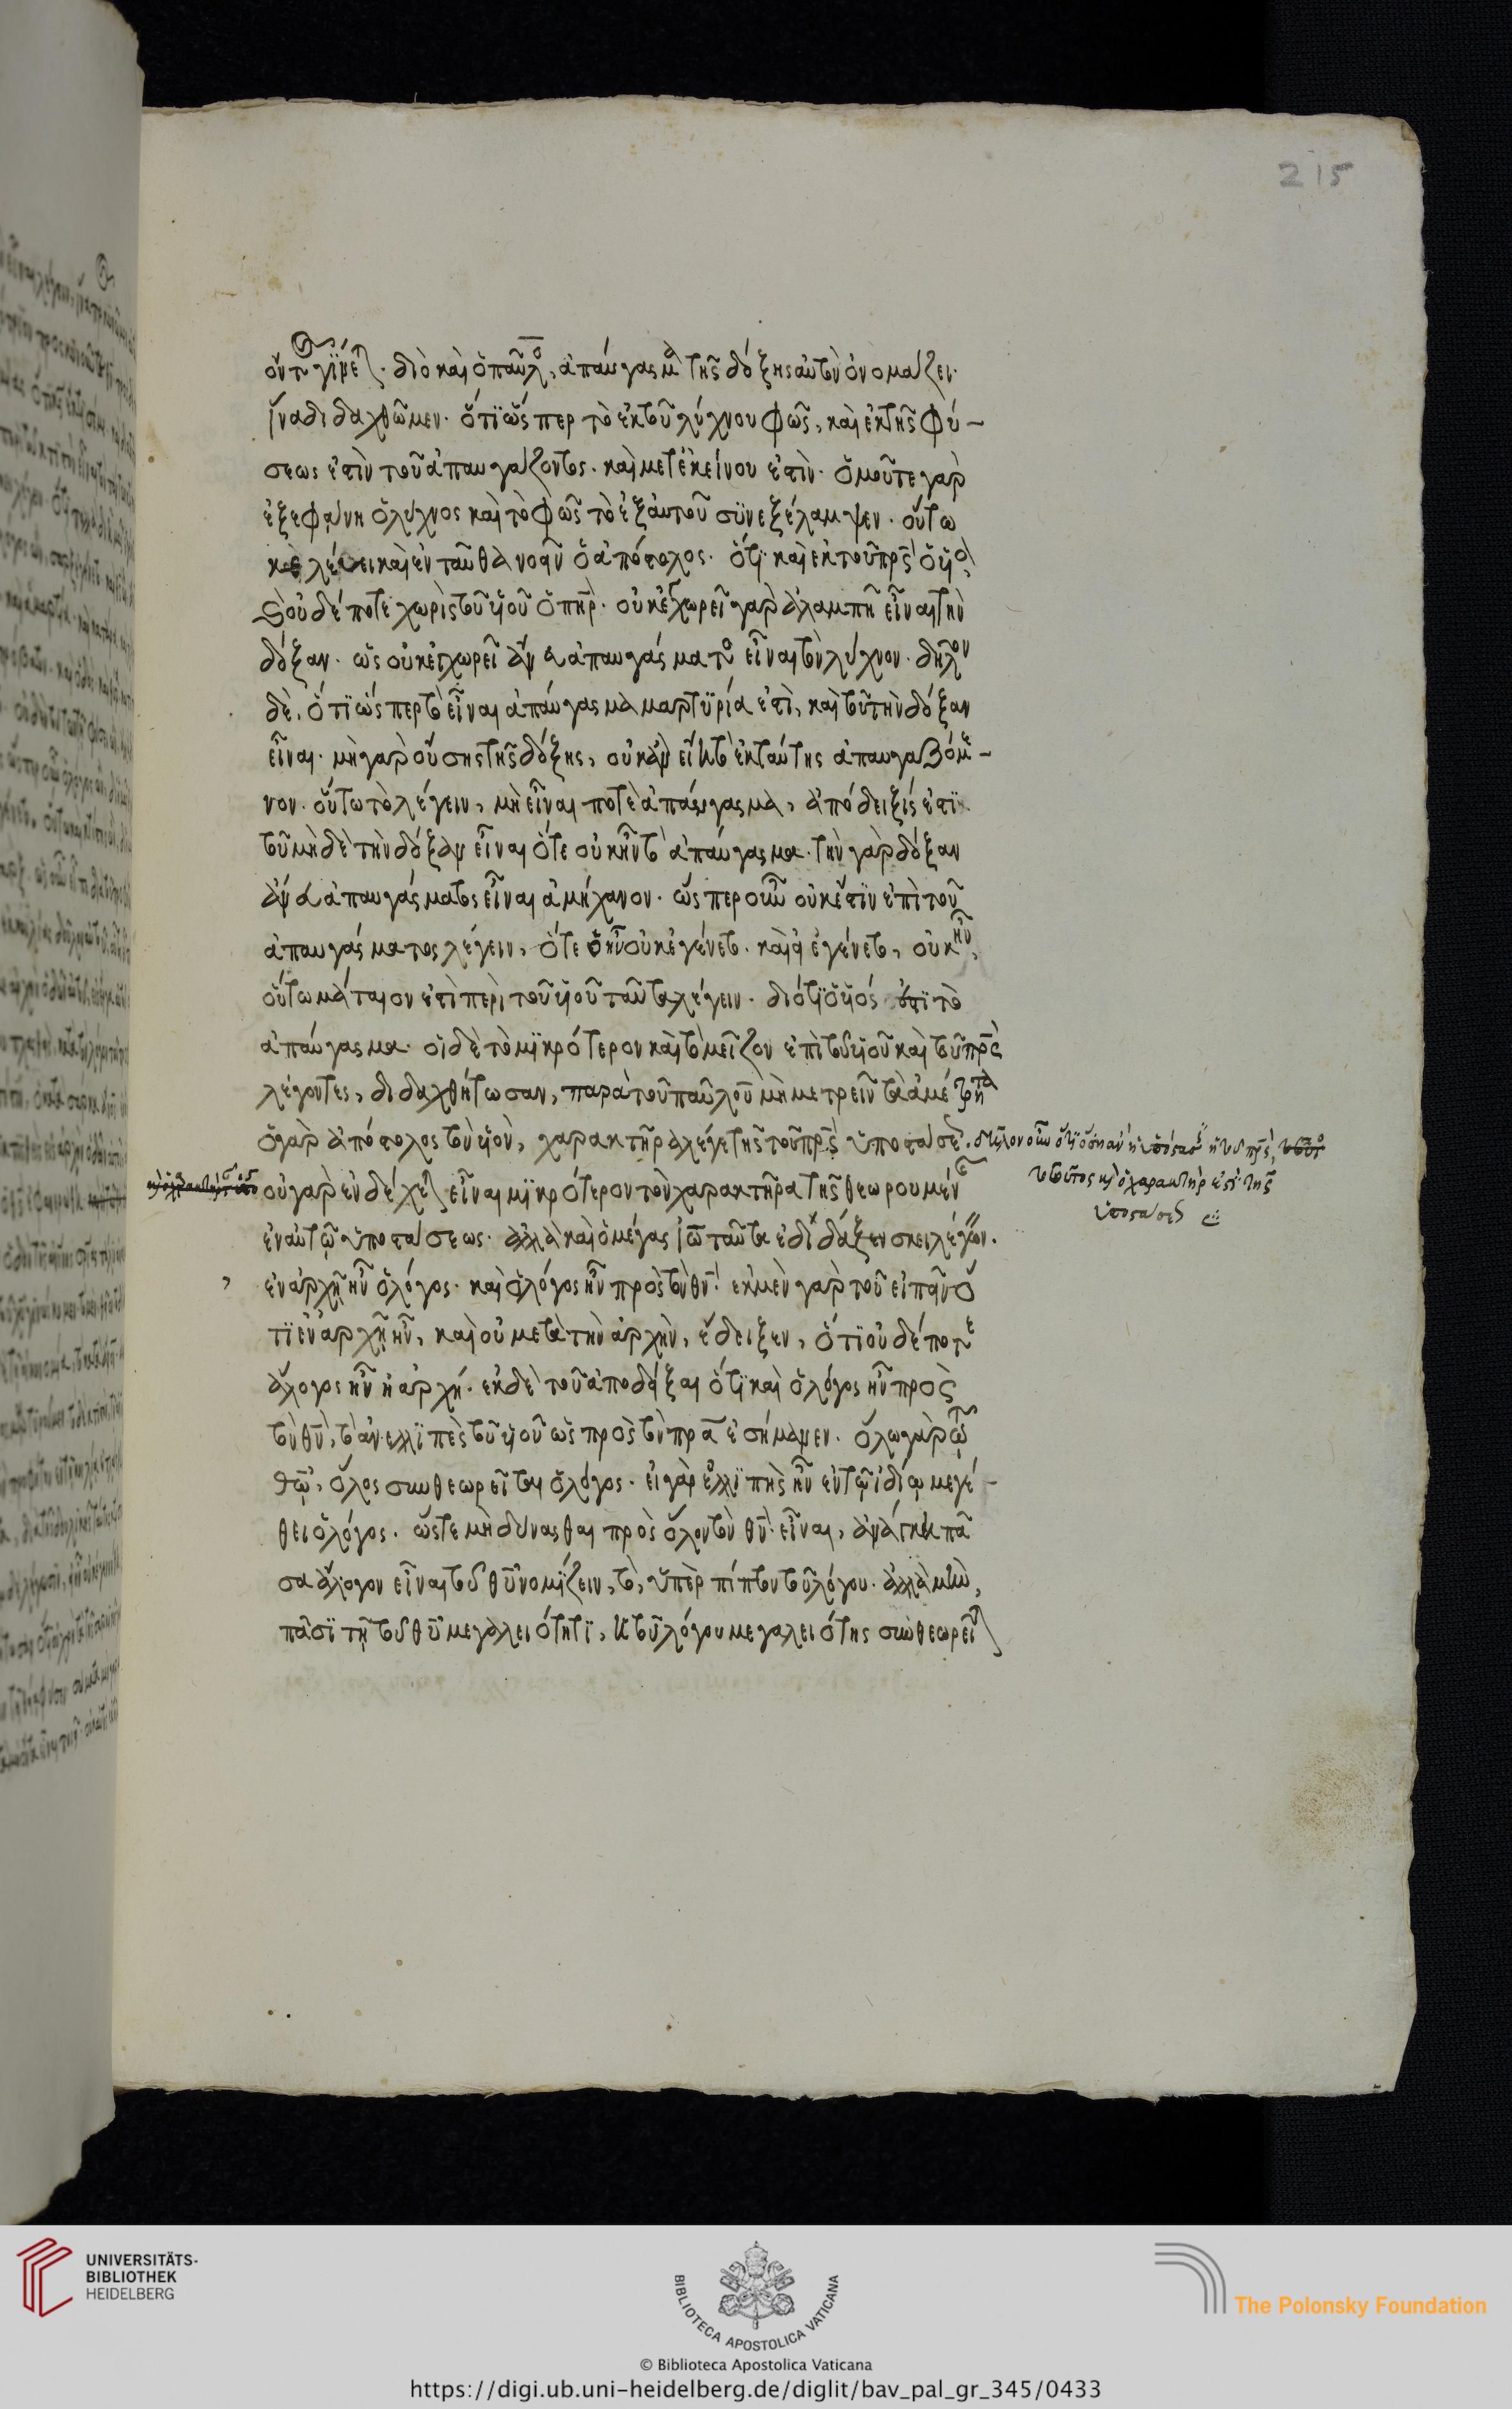 215
διὸ καὶ ὁ παῦλο, ἀπαύγασμα τῆς δόξης αὐτὸν ὀνομάζει.
ἵνα διδαχθῶμεν. ὅτϊ ὥσπερ τὸ ἐκ τοῦ λύχνου φῶς, καὶ ἐκ τῆς φύ-
σεως ἐστὶν τοῦ ἀπαυγάζοντος. καὶ μετ' ἐκείνου ἐστὶν. ὁμοῦ τε γὰρ
ἐξεφάνη ὁ λύχνος καὶ τὸ φῶς τὸ ἐξ αὐτοῦ συνεξέλαμψεν. οὕτω
κελεύει καὶ ἐνταῦθα νοεῖν ὁ ἀπόστολος. ὅτι καὶ ἐκ τοῦ πρς ὁ υἱο
οὐδέποτε χωρὶς τοῦ υἱοῦ ὁ πηρ. οὐκ ἐχωρεῖ γὰρ ἀλαμπῆ εἶναι τὴν
δόξαν. ὡς οὐκ ἐχωρεῖ ἄνευ ἀπαυγάσματο εἶναι τὸν λύχνον. δῆλον
δὲ, ὅτϊ ὥσπερ τὸ εἶναι ἀπαύγασμα μαρτϋρία ἐστὶ, καὶ τοῦ τὴν δόξαν
εἶναι. μὴ γὰρ οὔσης τῆς δόξης, οὐκ ἂν εἴη τὸ ἐκ ταύτης ἀπαυγαζόμε-
νον. οὕτω τὸ λέγειν, μὴ εἶναι ποτὲ ἀπαύγασμα, ἀπόδειξίς ἐστϊ
τοῦ μὴ δὲ τὴν δόξαν εἶναι ὅτε οὐκ ἦν τὸ ἀπαύγασμα. τὴν γὰρ δόξαν
ἄνευ ἀπαυγάσματος εἶναι ἀμήχανον. ὥσπερ οὖν οὐκ ἔστϊν ἐπὶ τοῦ
ἀπαυγάσματος λέγειν, ὅτε ἦν οὐκ ἐγένετο. καὶ εἰ ἐγένετο, οὐκ ἦν,
οὕτω μάταιον ἐστὶ περὶ τοῦ υἱοῦ ταῦτα λέγειν. διότϊ ὁ υἱός ἐστϊ τὸ
ἀπαύγασμα. οἱ δὲ τὸ μϊκρότερον καὶ τὸ μεῖζον ἐπὶ τοῦ υἱοῦ καὶ τοῦ πρς
λέγοντες, διδαχθήτωσαν, παρὰ τοῦ παύλου μὴ μετρεῖν τὰ ἀμέτρητα
ὁ γὰρ ἀπόστολος τὸν υἱὸν, χαρακτῆρα λέγει τῆς τοῦ πρς ὑποστάσε.
δῆλον οὖν ὅτϊ ὅση ἂν ἡ ὑπόστασι ᾖ τοῦ πρς,
τοσοῦτος καὶ ὁ χαρακτήρ ἐστι τῆς
ὑποστάσε
οὐ γὰρ ἐνδέχετ εἶναι μϊκρότερον τὸν χαρακτῆρα τῆς θεωρουμέν
ἐν αὐτῷ ὑποστάσεως. ἀλλὰ καὶ ὁ μέγας ἰω ταῦτα ἐδίδαξεν ἐκεῖ λέγων.
ἐν ἀρχῇ ἦν ὁ λόγος. καὶ ὁ λόγος ἦν πρὸς τὸν θν. ἐκ μὲν γὰρ τοῦ εἰπεῖν ὅ
τϊ ἐν ἀρχῇ ἦν, καὶ οὐ μετὰ τὴν ἀρχὴν, ἔδειξεν, ὅτϊ οὐδέποτε
ἄλογος ἦν ἡ ἀρχή. ἐκ δὲ τοῦ ἀποδεῖξαι ὅτϊ καὶ ὁ λόγος ἦν πρὸς
τὸν θν, τὸ ἀνελλϊπὲς τοῦ υἱοῦ ὡς πρὸς τὸν πρα ἐσήμανεν. ὅλω γὰρ τῷ
θῷ, ὅλος συνθεωρεῖται ὁ λόγος. εἰ γὰρ ἐλλϊπὴς ἦν ἐν τῷ ἰδίῳ μεγέ-
θει ὁ λόγος. ὥστε μὴ δύνασθαι πρὸς ὅλον τὸν θν εἶναι, ἀνάγκη πᾶ
σα ἄλογον εἶναι τοῦ θυ νομίζειν, τὸ, ὑπερπίπτον τοῦ λόγου. ἀλλὰ μὴν,
πάσϊ τῇ τοῦ θυ μεγαλειότητϊ, ἡ τοῦ λόγου μεγαλειότης συνθεωρεῖτ
UNIVERSITÄTS-
BIBLIOTHEK
HEIDELBERG
BIBLIOTECA APOSTOLICA VATICANA
The Polonsky Foundation
© Biblioteca Apostolica Vaticana
https://digi.ub.uni-heidelberg.de/diglit/bav_pal_gr_345/0433